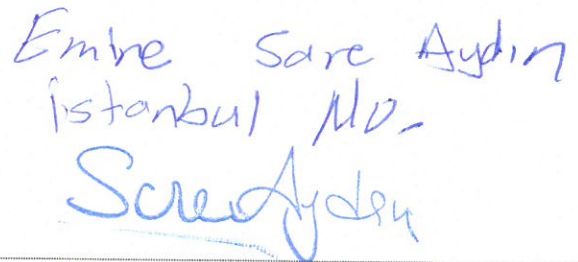 Emine Sare Aydın
İstanbul Mv.
Sare Aydın